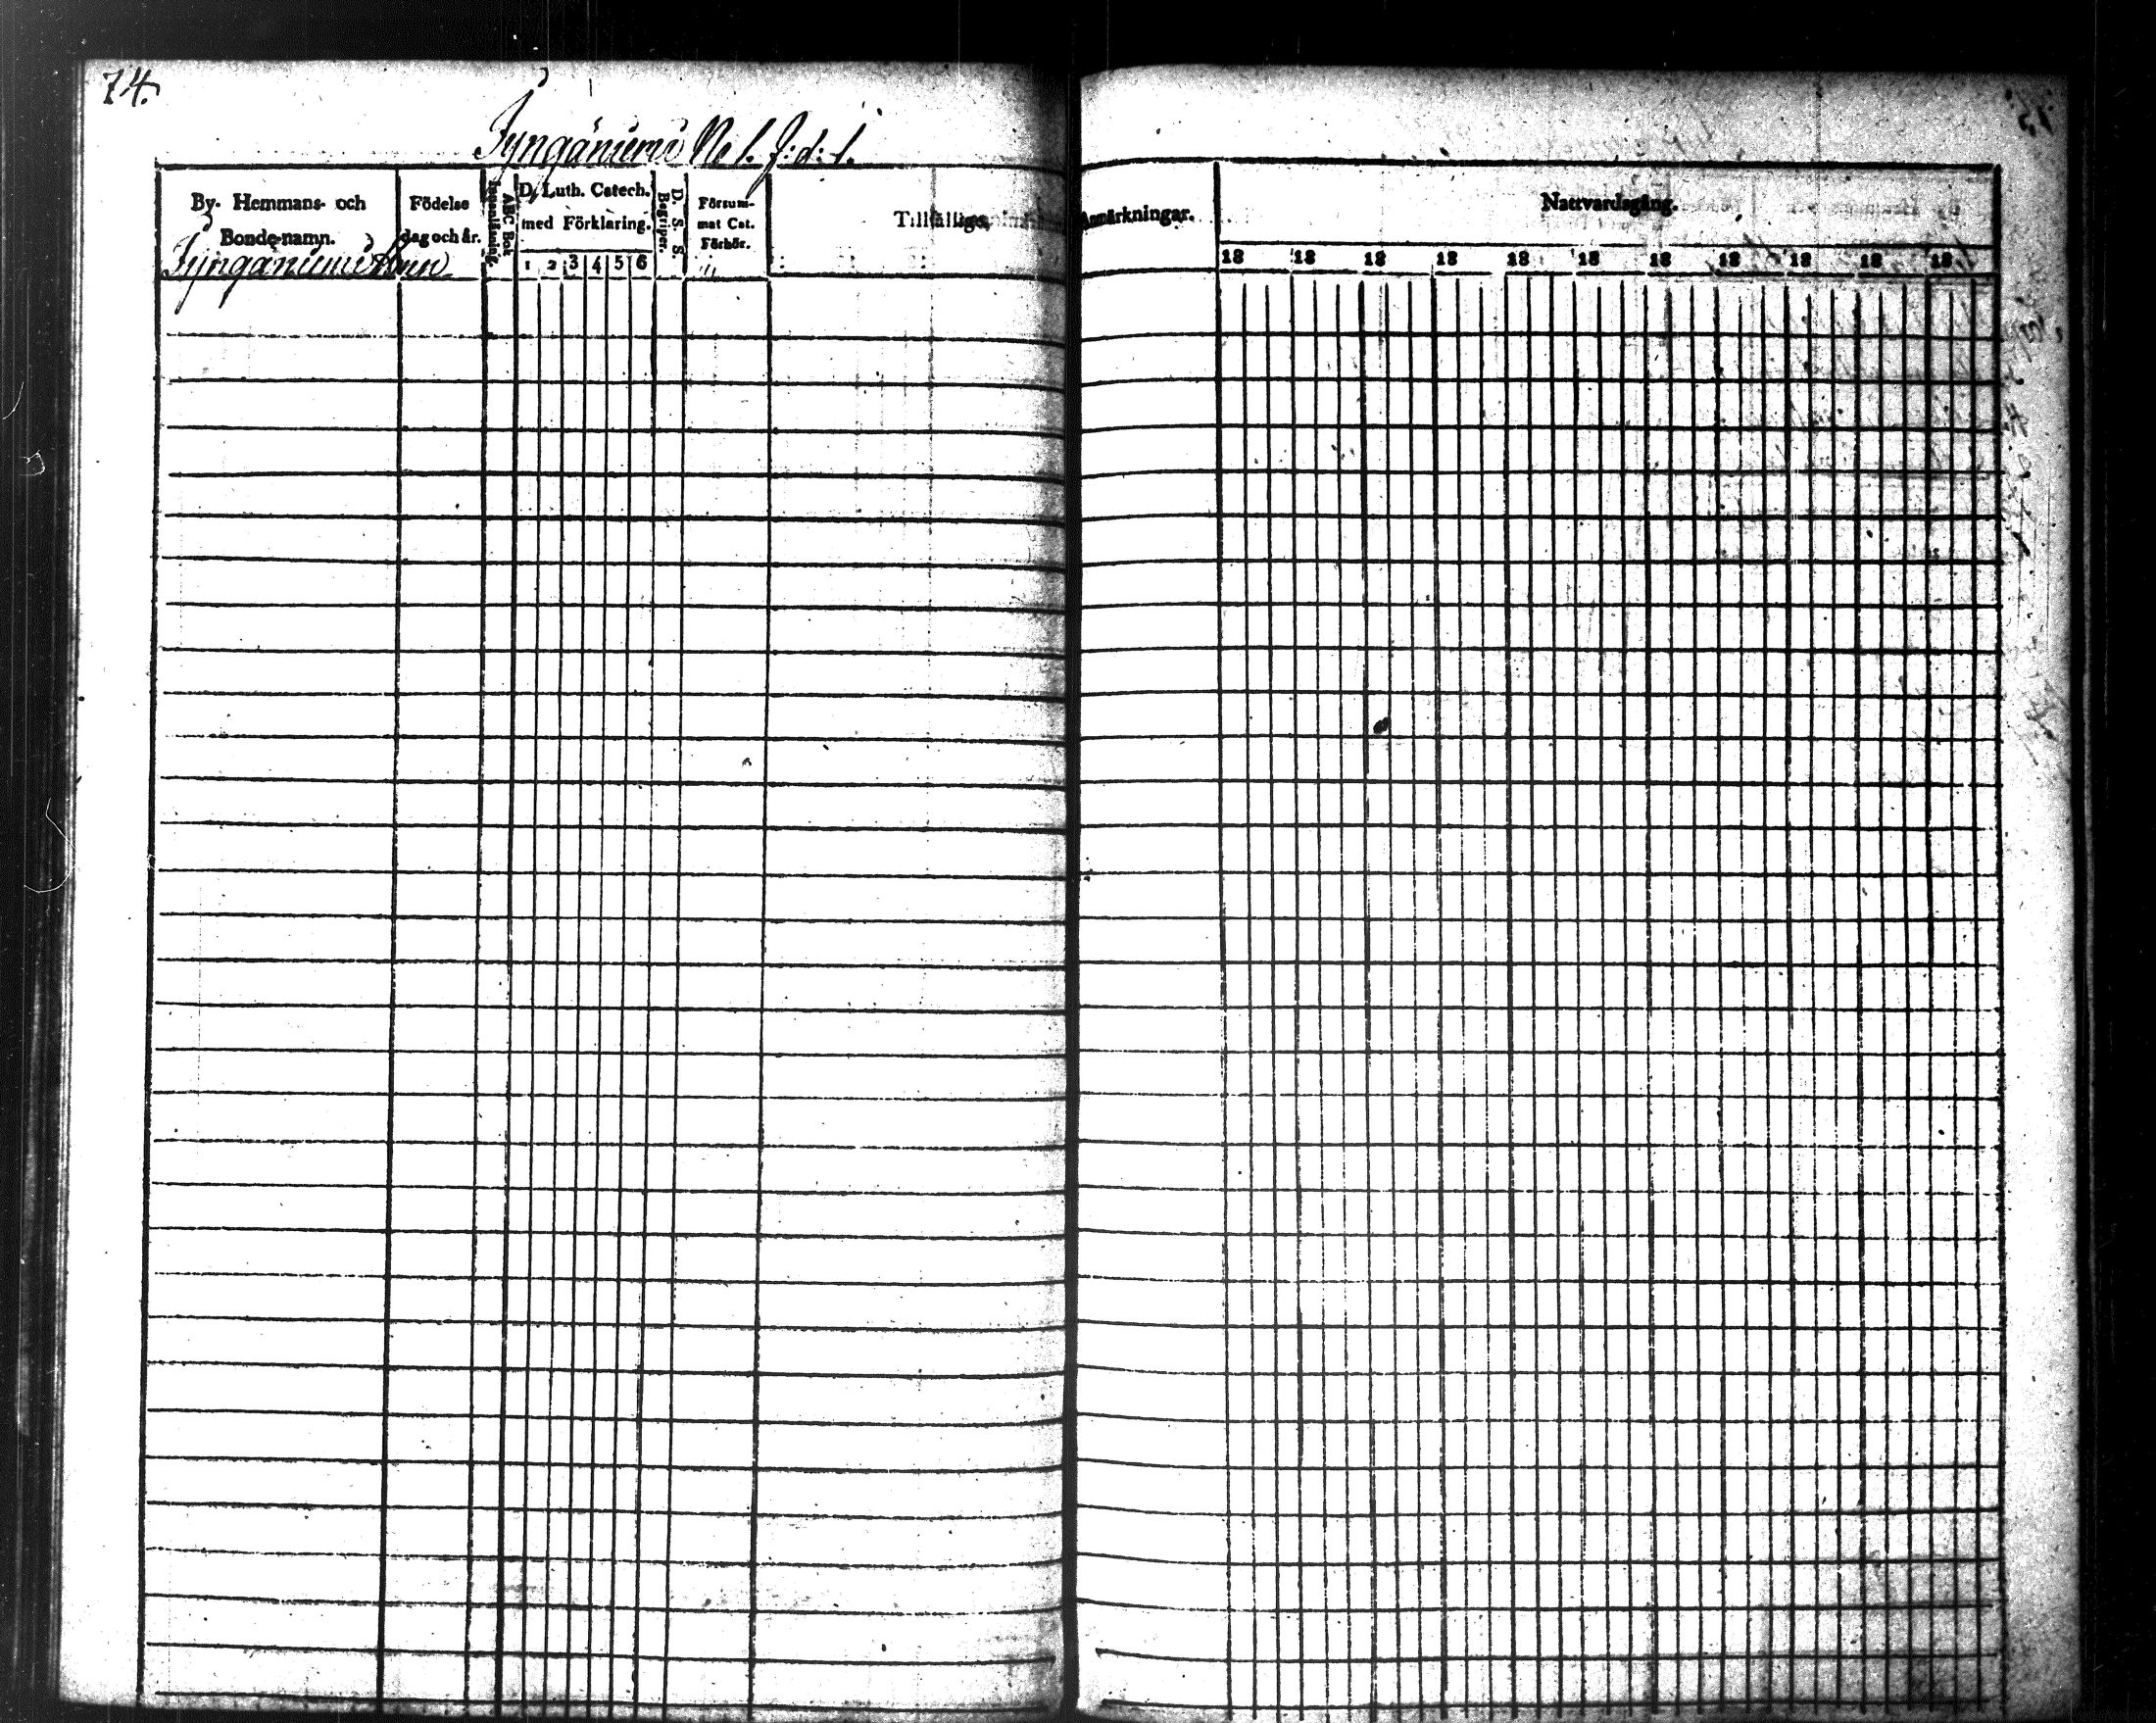 74.
Tyngäniemi No 1. J: d: 1.
By- Hemmans- och
Bonde-namn.
Födelse
dag och år.
Innanläsning.
ABC Bok
D. Luth. Catech.
med Förklaring.
1 2 3 4 5 6
D. S. S.
Begriper.
Försum-
mat Cat.
Förhör.
Tillfällige
Anmärkningar.
Nattvardsgång.
18 18 18 18 18 18 18 18 18 18 18
Tyngäniemi